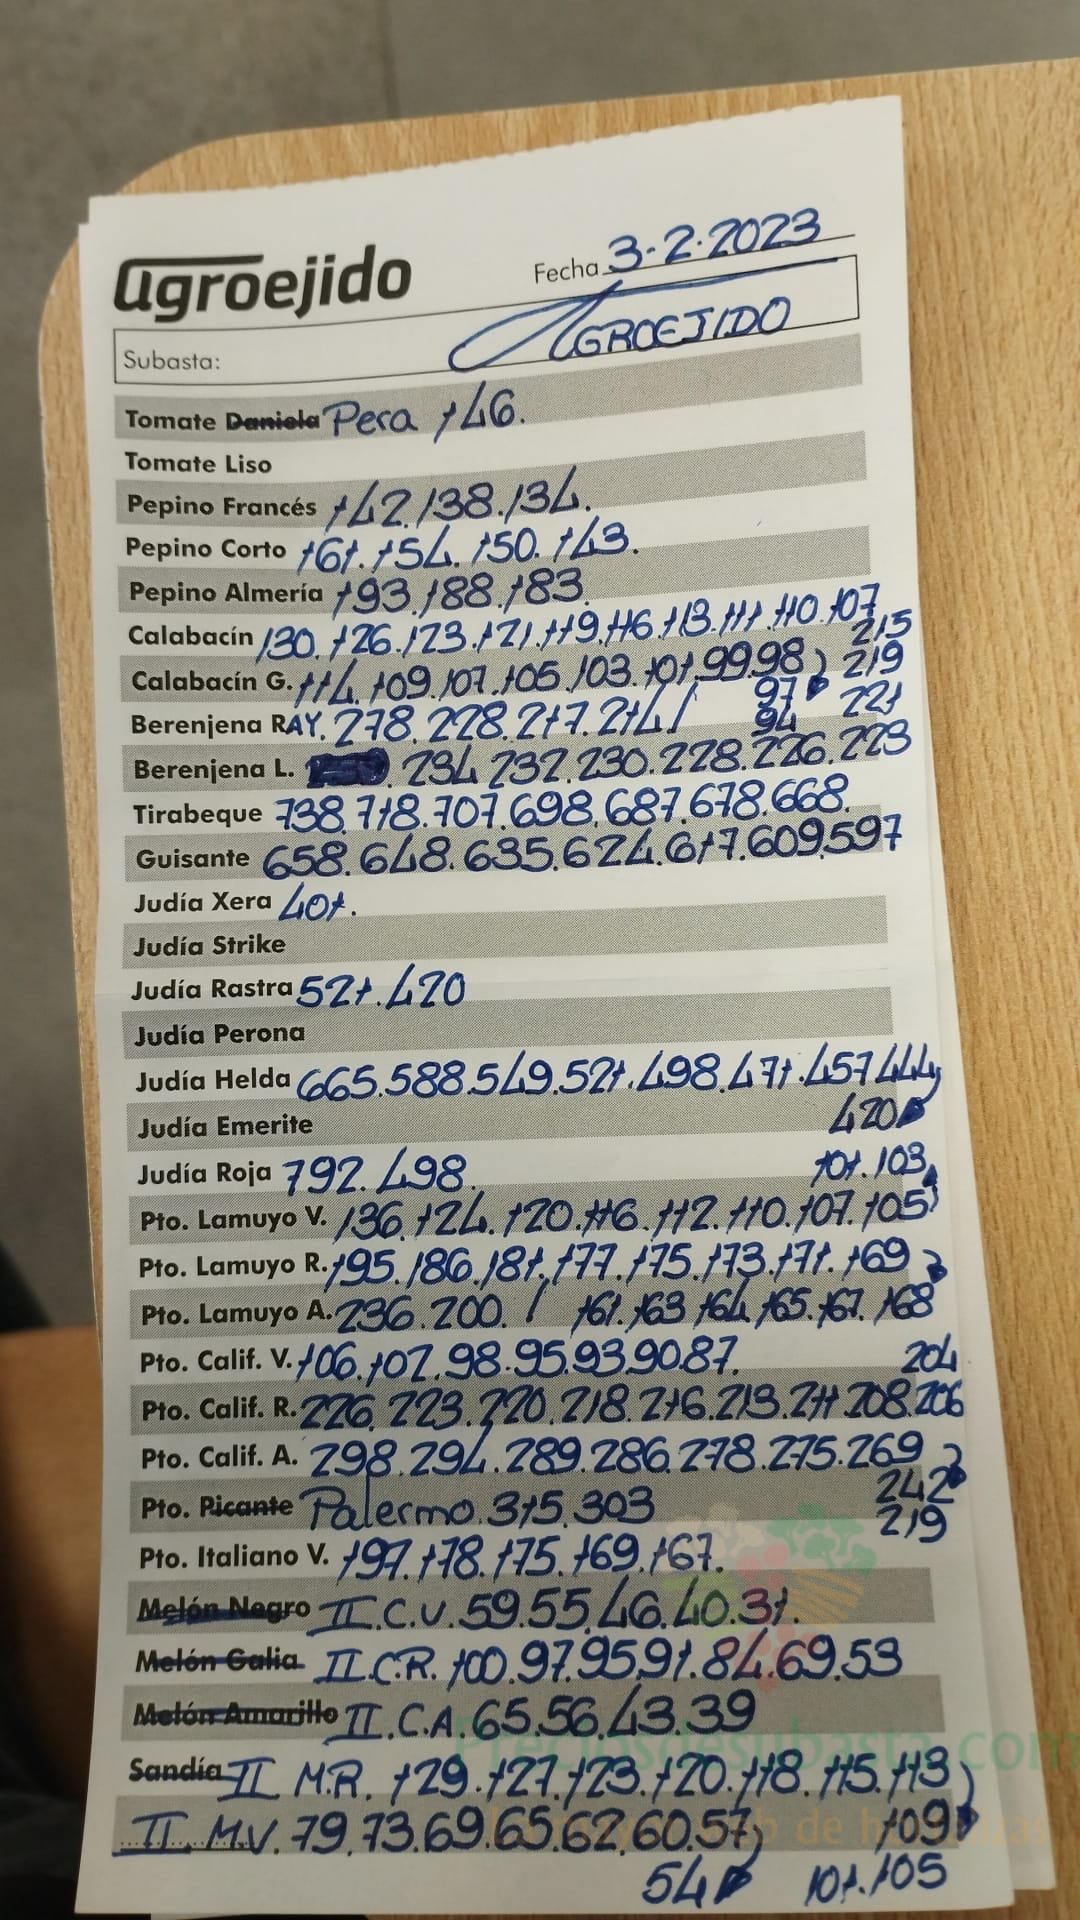 agroejido
Fecha 3-2-2023
Subasta: AGROEJIDO
Tomate Daniela Pera 146.
Tomate Liso
Pepino Francés 142.138.134.
Pepino Corto 161.154.150.143.
Pepino Almería 193.188.183.
Calabacín 130.126.123.121.119.116.113.111.110.107
215
Calabacín G. 114.109.107.105.103.101.99.98) 219
97 221
Berenjena RAY. 278.228.217.214/ 94
Berenjena L. 234.232.230.228.226.223
Tirabeque 738.718.707.698.687.678.668.
Guisante 658.648.635.624.617.609.597
Judía Xera 401.
Judía Strike
Judía Rastra 521.420
Judía Perona
Judía Helda 665.588.549.521.498.471.457.444)
Judía Emerite 420
Judía Roja 792.498. 101.103
Pto. Lamuyo V. 136.124.120.116.112.110.107.105)
Pto. Lamuyo R. 195.186.181.177.175.173.171.169
Pto. Lamuyo A. 236.200. / 161.163.164.165.167.168
Pto. Calif. V. 106.102.98.95.93.90.87. 204
Pto. Calif. R. 226.223.220.218.216.213.211.208.206
Pto. Calif. A. 298.294.289.286.278.275.269
242
Pto. Picante Palermo.315.303 219
Pto. Italiano V. 197.178.175.169.167.
Melón Negro II.C.V.59.55.46.40.31.
Melón Galia II.C.R. 100.97.95.91.84.69.53
Melón Amarillo II.C.A.65.56.43.39
Preciosdesubasta.com
Sandía II M.R. 129.127.123.120.118.115.113)
II MV.79.73.69.65.62.60.57) 109
54 101.105